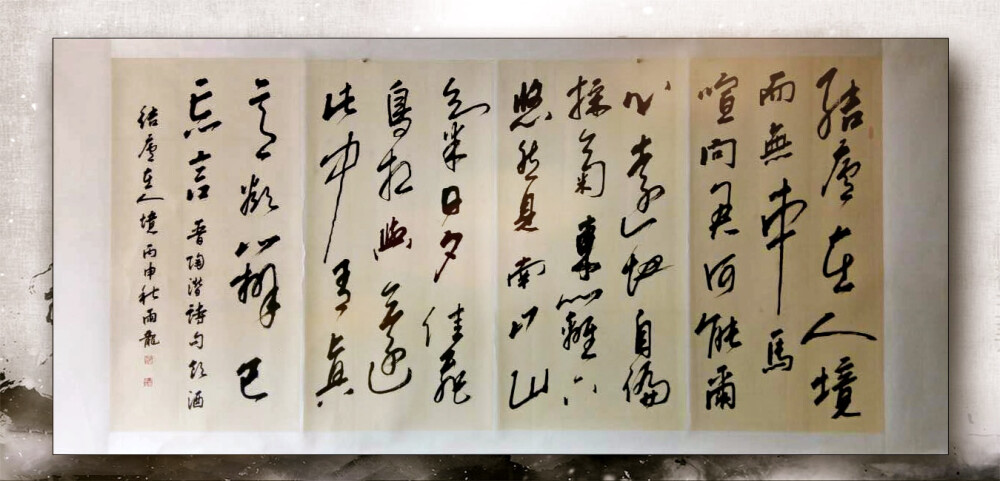 結廬在人境
而無車馬
喧問君何能爾
心遠地自偏
採菊東籬下
悠然見南山山
氣日夕佳飛
鳥相與還
此中有真
意欲辨已
忘言 晋陶潛詩句飲酒
結廬在人境丙申秋雨龍